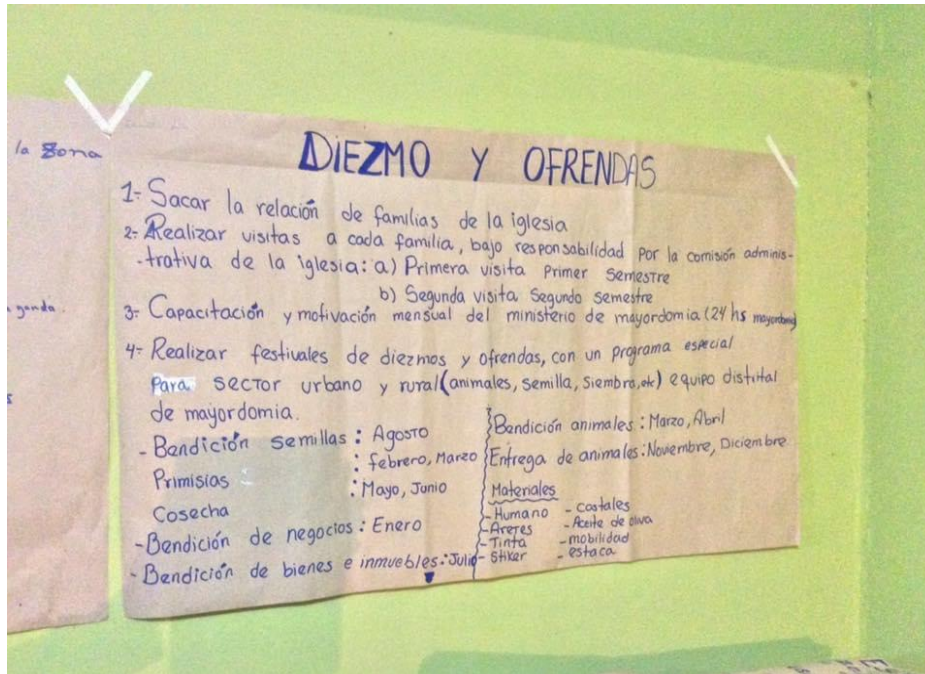 la Zona
DIEZMO Y OFRENDAS
1- Sacar la relación de familias de la iglesia
2- Realizar visitas a cada familia, bajo responsabilidad por la comisión adminis-
-trativa de la iglesia: a) Primera visita Primer Semestre
b) Segunda visita Segundo semestre
3- Capacitación y motivación mensual del ministerio de mayordomia (24 hs mayordomo)
4- Realizar festivales de diezmos y ofrendas, con un programa especial
Para sector urbano y rural (animales, semilla, siembra, etc) equipo distrital
de mayordomia.
- Bendición semillas : Agosto
Primisias : febrero, Marzo
Cosecha : Mayo, Junio
- Bendición de negocios : Enero
- Bendición de bienes e inmuebles : Julio
Bendición animales : Marzo, Abril
Entrega de animales : Noviembre, Diciembre
Materiales
- Humano - costales
- Aretes - Aceite de oliva
- Tinta - mobilidad
- Stiker - estaca